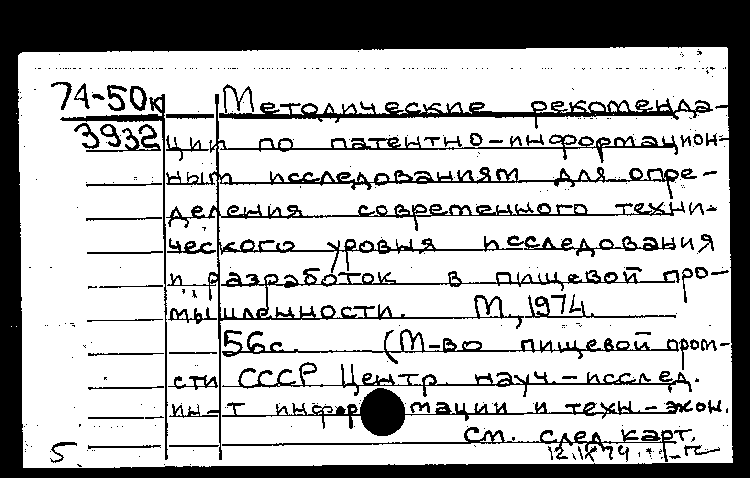 74-50к Методические рекоменда-
3932 ции по патентно-информацион-
ным исследованиям для опре-
деления современного техни-
ческого уровня исследования
и разработок в пищевой про-
мышленности. М., 1974.
56с. (М-во пищевой пром-
сти СССР. Центр. науч.-исслед.
ин-т информации и техн.-экон.
см. след. карт.
5.